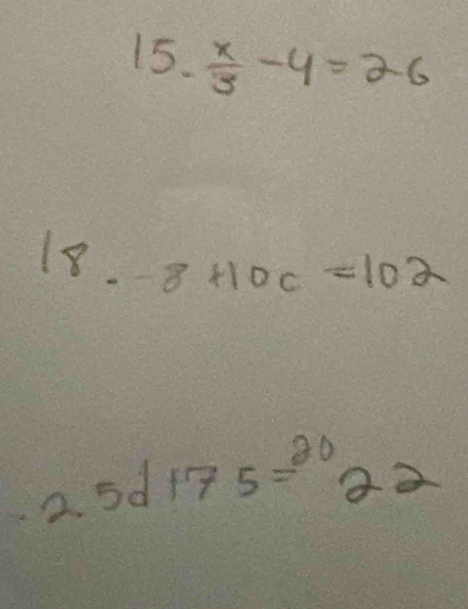 15. x/3 -4=26
18. -8+10c =102
.25d+75=20 22